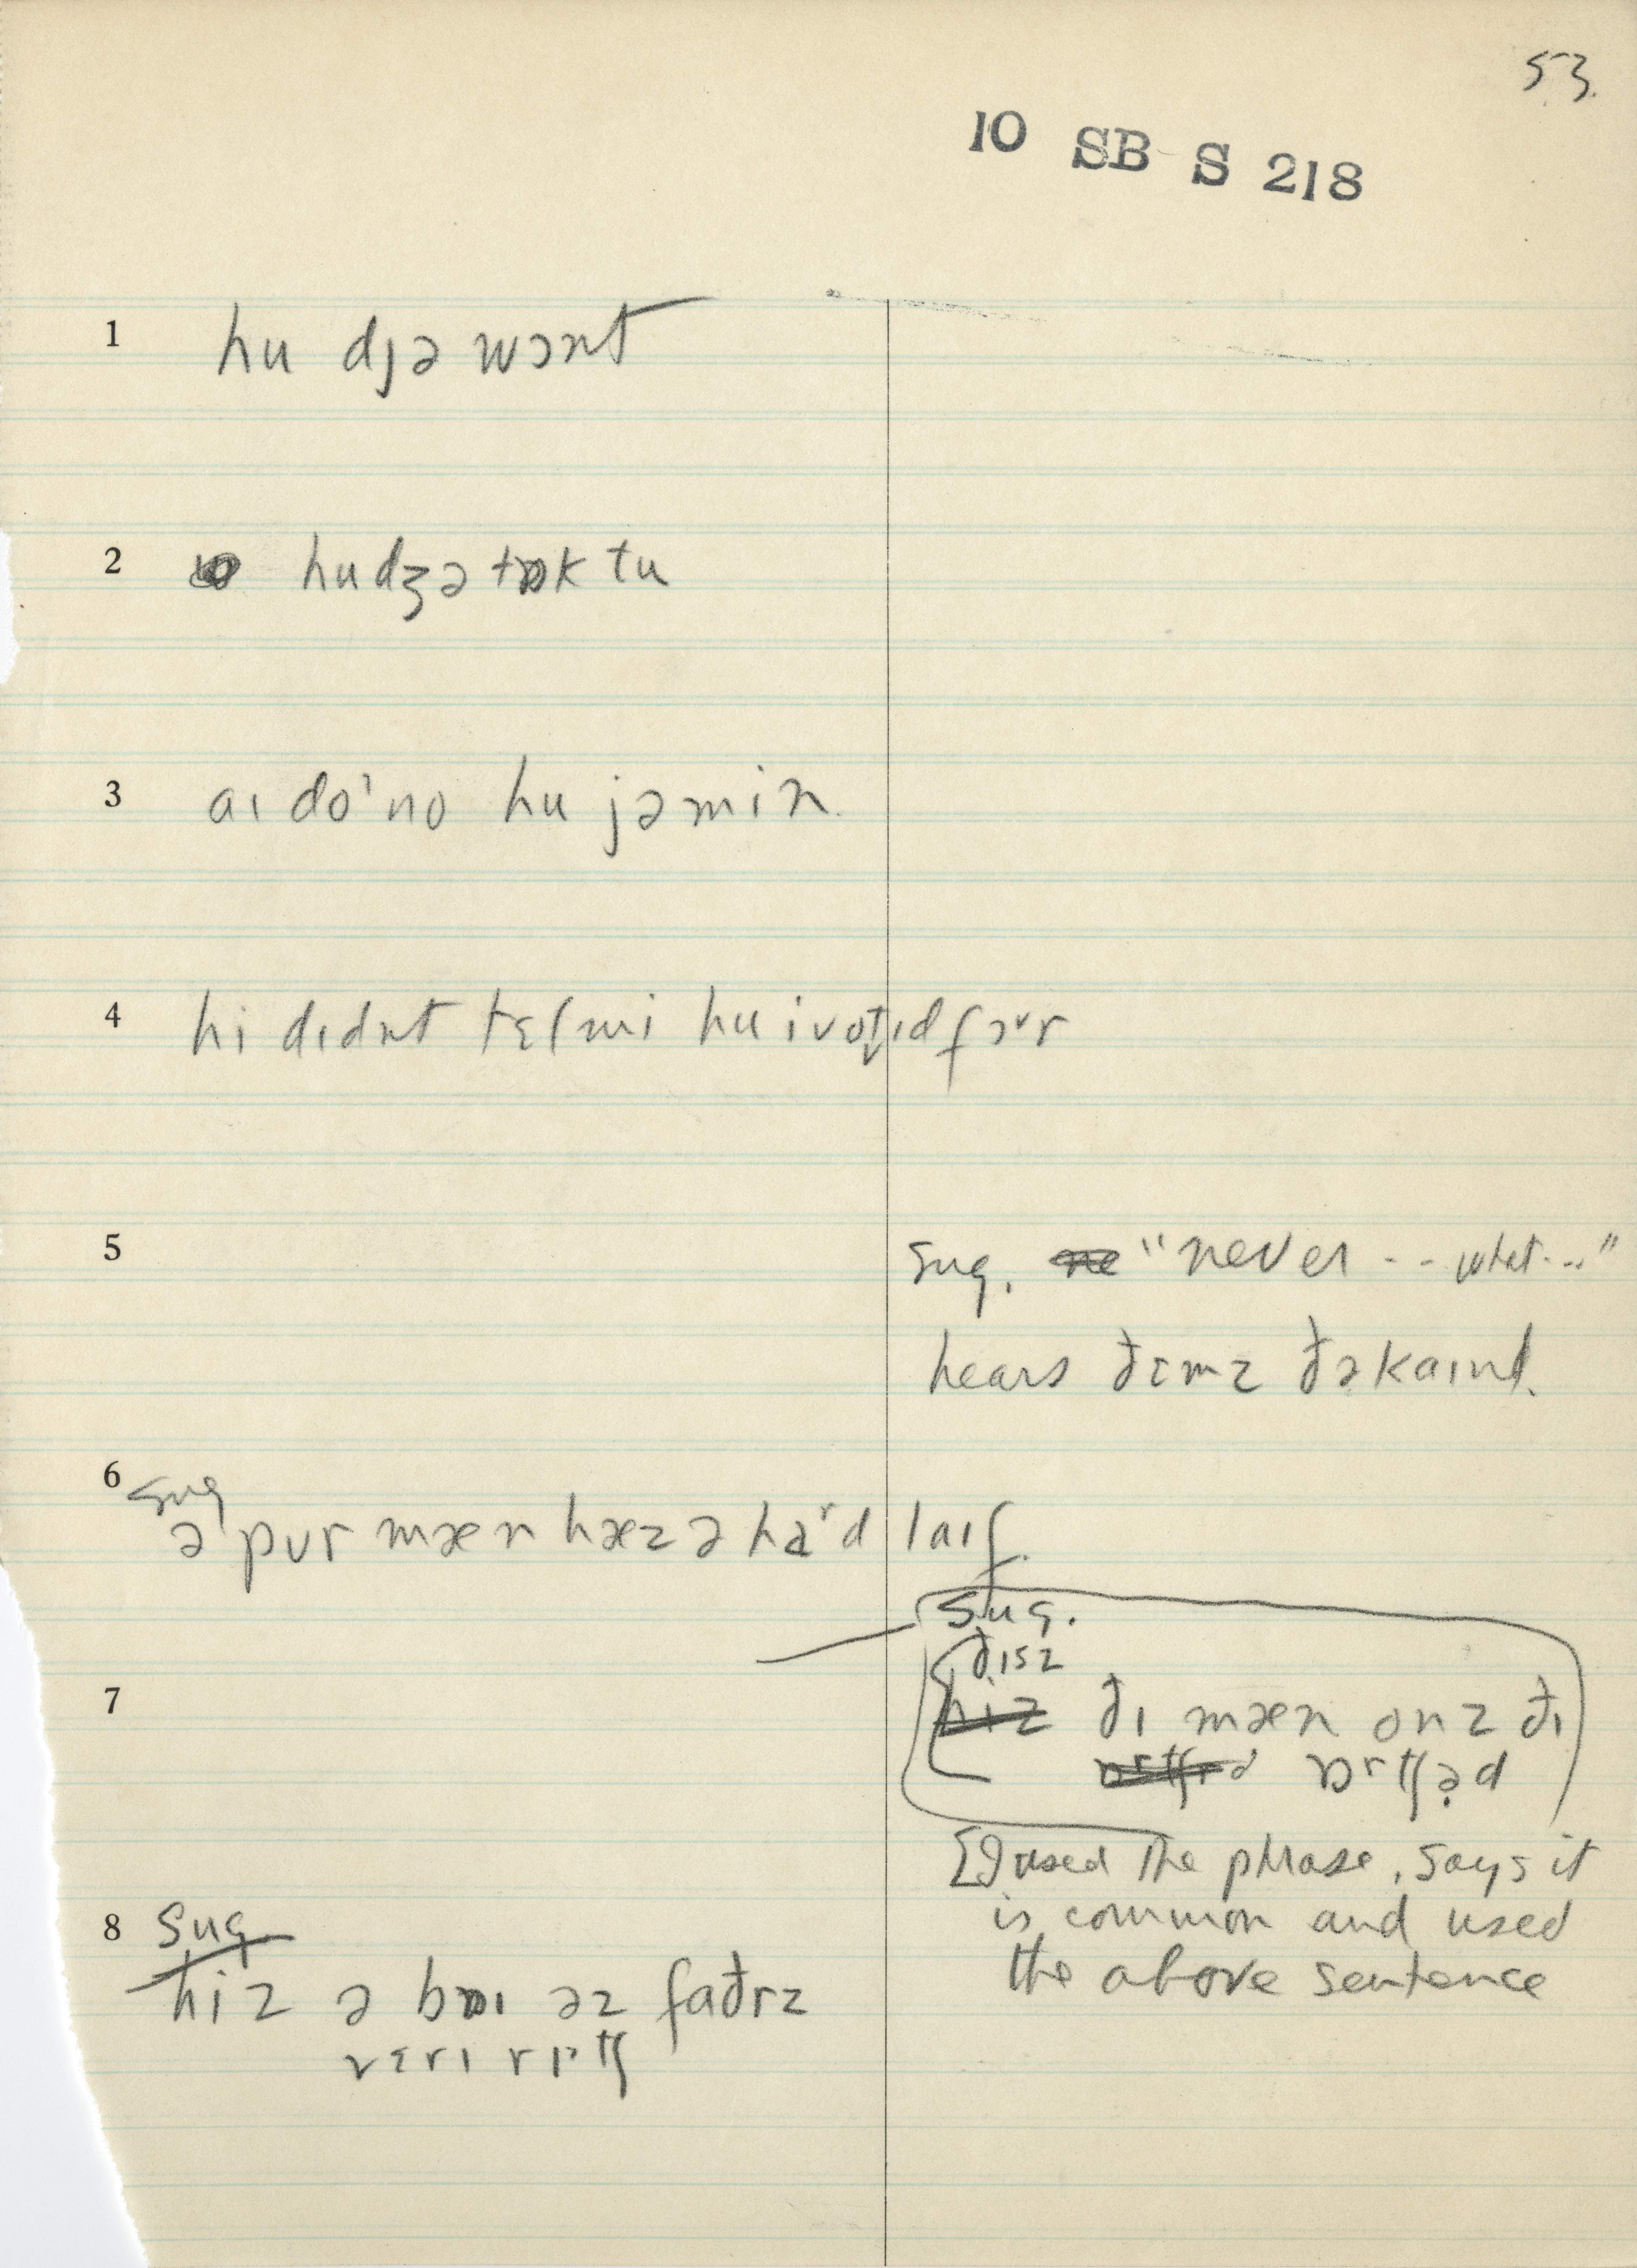 53.
10 SB S 218
1 hu dȷə wɔnt
2 hudʒə tɒk tu
3 aɪ doˈno hu jəmin
4 hi dɪdnt tɛl mi hu i votɪd fɔᶹr
5 sug. ne "never - - what - - -"
hears ðɛmz ðəkaɪnd.
6 sug
ə pʊr mæn hæz ə haʳd laɪf.
sug.
ðɪsz
7 hiz ðɪ mæn onz ðɪ
ɒrtʃrd ɒrtʃəd
[I used the phrase, says it
is common and used
the above sentence
8 sug
hiz ə bɒɪ əz faðrz
vɛrɪ rɪtʃ